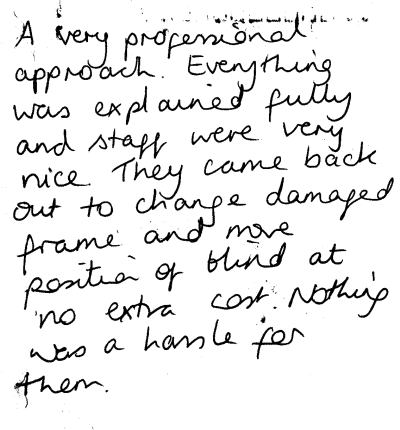 A very professional
approach. Everything
was explained fully
and staff were very
nice. They came back
out to change damaged
frame and move
position of blind at
no extra cost. Nothing
was a hassle for
them.